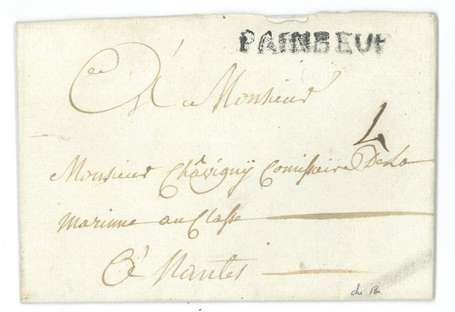 PAINBEUF
A Monsieur
4
Monsieur Chavigny Comissaire De La
Marinne au Classe
A Nantes